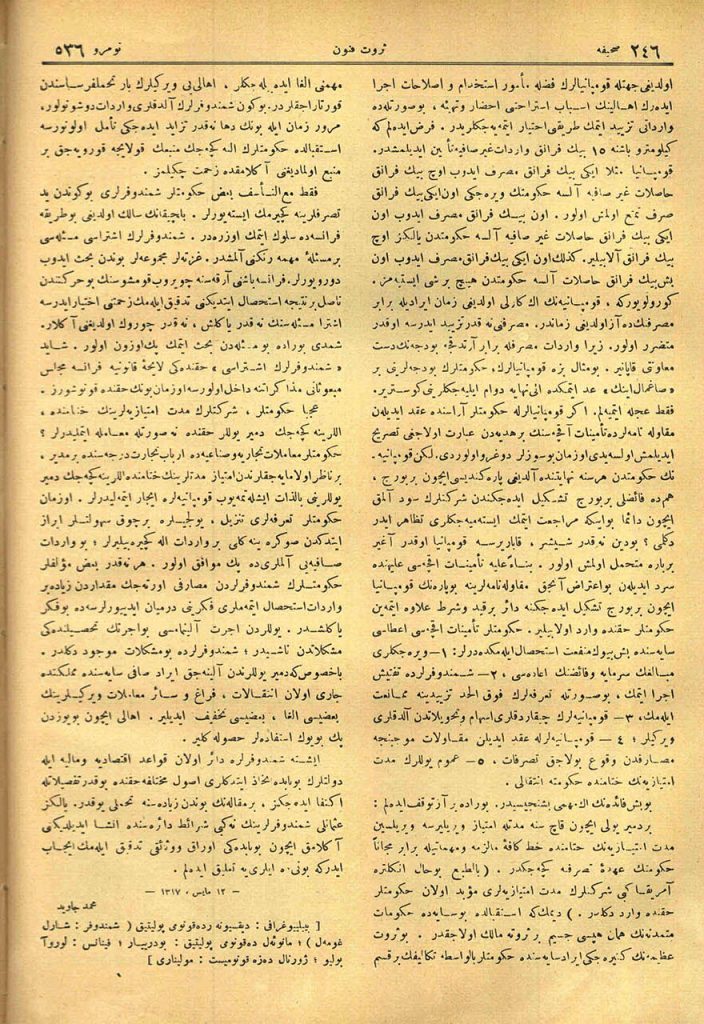 ٢٤٦ صحيفه
ثروت فنون
نومرو ٥٣٦
اولديغى جهتله قومپانيالرك فضله مأمور استخدام و اصلاحات اجرا
ايدەرك اهالينك اسباب استراحتنى احضار وتهيئه ، بوصورتلەدە
وارداتى تزييد ايتمك طريقنى اختيار ايتميەجكلريدر. فرض ايدەلم كه
كيلومترو باشنه ١٥ بيك فرانق واردات غيرصافيه تأمين ايدلمشدر.
قومپانيا مثلا ايكى بيك فرانق مصرف ايدوب اوچ بيك فرانق
حاصلات غير صافيه آلسه حكومتك ويرەجكى اون ايكى بيك فرانق
صرف تمتع اولمش اولور . اون بيك فرانق مصرف ايدوب اون
ايكى بيك فرانق حاصلات غير صافيه آلسه حكومتدن يالكز اوچ
بيك فرانق آلابيلير. كذلك اون ايكى بيك فرانق مصرف ايدوب اون
بش بيك فرانق حاصلات آلسه حكومتدن هيچ بر شى ايستيەمز.
كورولويوركه ، قومپانيەنك اك كارلى اولديغى زمان ايراديله برابر
مصرفنك ده آز اولديغى زماندر. مصرفنى نه قدر تزييد ايدرسه اوقدر
متضرر اولور. زيرا واردات مصرفله برابر آرتدقجه بودجەنك دست
معاونتى قاپانير . بومثال بزه قومپانيالرك، حكومتلرك بودجەلرينى بر
«صاغمال اينك» عد ايتمكده الى نهايه دوام ايليەجكلرينى كوستريز.
فقط عجله ايتميەلم. اكر قومپانيالرله حكومتلر آراسنده عقد ايديلەن
مقاوله نامەلرده تأمينات آقچەسنك بر هديەدن عبارت اولاجغى تصريح
ايديلمش اولسەيدى اوزمان بوسوزلر دوغرو اولوردى. لكن قومپانيه.
نك حكومتدن هرسنه نهايتنده آلديغى پاره كنديسى ايچون بر بورج ،
هم ده فائضلى بر بورج تشكيل ايدەجكندن شركتلرك سود آلمق
ايچون دائما بو اينكه مراجعت ايتمك ايستەميەجكلرى تظاهر ايدر
دكلمى ؟ بودين نه قدر شيشر ، قاباريرسه قومپانيا اوقدر آغير
برباره متحمل اولمش اولور . بناءً عليه تأمينات اقچەسى عليهنده
سرد ايديلەن بو اعتراض آنجق مقاوله نامەلرينه بوپارەنك قومپانيا
ايچون بر بورج تشكيل ايدەجكنه دائر بر قيد وشرط علاوه ايتمەين
حكومتلر حقنده وارد اولابيلير . حكومتلر تأمينات اقچەسى اعطاسى
سايەسنده بش بيوك منفعت استحصال ايلەمكدەدرلر: ١ – ويرەجكلرى
مبالغك سرمايه وفائضنك اعادەسى ، ٢ – شمندوفرلرده تفتيش
اجرا ايتمك ، بوصورتله تعرفەلرك فوق الحد تزييدينه ممانعت
ايلەمك، ٣ – قومپانيەلرك چيقاردقلرى اسهام وتحويلاتدن آلدقلرى
ويركيلر ؛ ٤ – قومپانيەلرله عقد ايديلن مقاولات موجبنجه
مصارفدن وقوع بولاجق تصرفات ، ٥ – عموم يوللرك مدت
امتيازيەنك ختامنده حكومته انتقالى .
بو بش فائدەنك اك مهمى بشنجيسيدر. بوراده بر آز توقف ايدەلم :
بر دمير يولى ايچون قاچ سنه مدتله امتياز ويريليرسه ويريلسين
مدت امتيازيەنك ختامنده خط كافهٔ مالزمه ومهماتيله برابر مجاناً
حكومتك عهدۀ تصرفنه كچەجكدر . ( بالطبع بوحال انكلتره
آمريقا كبى شركتلرك مدت امتيازيەلرى مؤبد اولان حكومتلر
حقنده وارد دكلدر . ) ديمك كه استقبالده بوسايەده حكومات
متمدنەنك همان هپسى جسيم بر ثروته مالك اولاجقدر . بوثروت
عظيمەنك كتيرەجكى ايراد سايەسنده حكومتلر بالواسطه تكاليفك بر قسم
مهمنى الغا ايدەبيلەجكلر ، اهالى بى ويركيلرك بار تحملفرساسندن
قورتاراجقلردر. بوكون شمندوفرلرك آلدقلرى واردات دوشونولور،
مرور زمان ايله بونك دها نەقدر تزايد ايدەجكى تأمل اولونورسه
استقبالده حكومتلرك النه كچەجك منبعك قولايجه قورويەجق بر
منبع اولماديغنى آكلامقده زحمت چكيلمز .
فقط مع التأسف بعض حكومتلر شمندوفرلرى بوكوندن يد
تصرفلرينه كچيرمك ايستەيورلر . بلچيقانك سالك اولديغى بوطريقه
فرانسەده سلوك ايتمك اوزرەدر . شمندوفرلرك اشتراسى مسئلەسى
بر مسئلهٔ مهمه رنكنى آلمشدر. غزتەلر مجموعەلر بوندن بحث ايدوب
دورويورلر. فرانسه باشنى آرقەسنه چويروب قومشوسنك بو حركتندن
ناصل بر نتيجه استحصال ايتديكنى تدقيق ايلەمك زحمتنى اختيار ايدرسه
اشترا مسئلەسنك نەقدر ياكلش ، نەقدر چوروك اولديغنى آكلار.
شمدى بوراده بو مسئلەدن بحث ايتمك پك اوزون اولور . شايد
« شمندوفرلرك اشتراسى » حقندەكى لايحهٔ قانونيه فرانسه مجلس
مبعوثانى مذاكراتنه داخل اولورسه اوزمان بونك حقنده قونوشورز .
عجبا حكومتلر ، شركتلرك مدت امتيازيەلرينك ختامنده ،
اللرينه كچەجك دمير يوللر حقنده نه صورتله معامله ايتمليدرلر ؟
حكومتلر معاملات تجاريه وصناعيەده ارباب تجارت درجەسنده برمدير ،
بر ناظر اولامايەجقلرندن امتياز مدتلرينك ختامنده اللرينه كچەجك دمير
يوللرينى بالذات ايشلەتمەيوب قومپانيەلره ايجار ايتمليدرلر . اوزمان
حكومتلر تعرفەلرى تنزيل ، يولجيلره برچوق سهولتلر ابراز
ايتدكدن صوكره ينه كلى بر واردات اله كچيرەبيليرلر ؛ بو واردات
صافيەيى آلملرى ده پك موافق اولور . هر نەقدر بعض مؤلفلر
حكومتلرك شمندوفرلردن مصارفى اورتەجك مقداردن زيادەبر
واردات استحصال ايتمەملرى فكرينى درميان ايدييورلرسەده بوفكر
ياكلشدر . يوللردن اجرت آلينماسى بواجرتك تحصيلندەكى
مشكلاتدن ناشيدر ؛ شمندوفرلرده بومشكلات موجود دكلدر .
باخصوص كه دمير يوللرندن آلينەجق ايراد صافى سايەسنده مملكتده
جارى اولان انتقالات ، فراغ و سائر معاملات ويركيلرينك
بعضيسى الغا ، بعضيسى تخفيف ايديلير . اهالى ايچون بويوزدن
پك بويوك استفادەلر حصوله كلير .
ايشته شمندوفرلره دائر اولان قواعد اقتصاديه وماليه ايله
دولتلرك بوبابده اتخاذ ايتدكلرى اصول مختلفه حقنده بوقدر تفصيلاتله
اكتفا ايدەجكز ، بر مقالەنك بوندن زيادەسنه تحملى يوقدر. يالكز
عثمانلى شمندوفرلرينك نه كبى شرائط دائرەسنده انشا ايديلديكنى
آكلامق ايچون بوبابدەكى اوراق ووثائقى تدقيق ايلەمك ايجاب
ايدركه بونى ده ايلرى يه تعليق ايدەلم .
– ١٢ مايس ، ١٣١٧ –
محمد جاويد
[ بيبليوغرافى : ديقسيونه ردەقونومى پوليتيق ( شمندوفر : شارل
غومەل ) ؛ مانوئەل دەقونومى پوليتيق : بودرييار ؛ فينانس : لوروآ
بوليو ؛ ژورنال دەزه قونوميست : موليناري ]